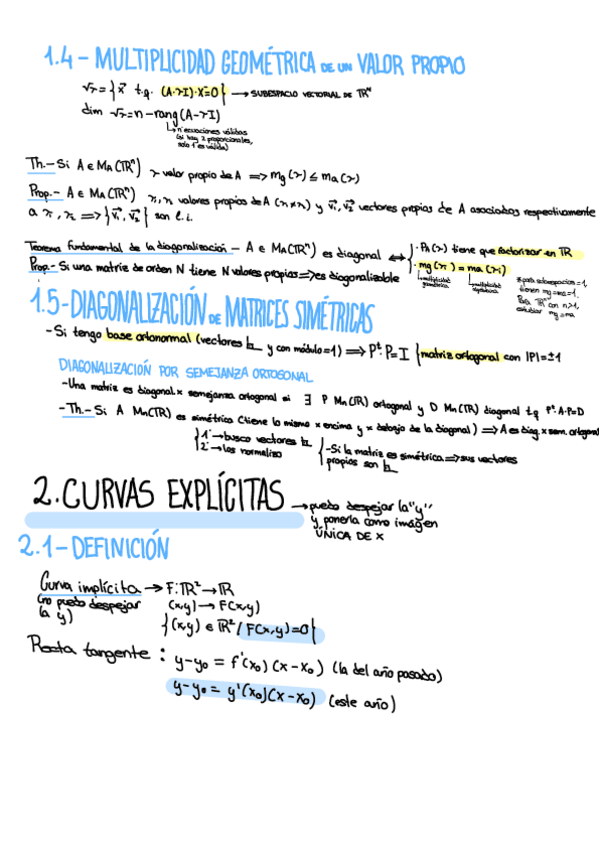 1.4- MULTIPLICIDAD GEOMÉTRICA DE UN VALOR PROPIO
Vr = { x⃗ t.q. (A-rI)·X=0 } → SUBESPACIO VECTORIAL DE ℝⁿ
dim Vr = n - rang (A-rI)
nº ecuaciones válidas
(si hay 2 proporcionales,
solo 1 es válida)
Th.- Si A ∈ Mn(ℝⁿ) r valor propio de A ⟹ mg(r) ≤ ma(r)
Prop.- A ∈ Mn(ℝⁿ) r₁, r₂ valores propios de A (r₁≠r₂) y v₁⃗, v₂⃗ vectores propios de A asociados respectivamente
a r₁, r₂ ⟹ {v₁⃗, v₂⃗} son l.i.
Teorema fundamental de la diagonalización - A ∈ Mn(ℝⁿ) es diagonal ⟺ { · PA(r) tiene que factorizar en ℝ
· mg(ri) = ma(ri)
multiplicidad geométrica multiplicidad algebraica
Prop.- Si una matriz de orden N tiene N valores propios ⟹ es diagonalizable
tienen mg=ma=1.
con n>1,
mg=ma
1.5-DIAGONALIZACIÓN DE MATRICES SIMÉTRICAS
- Si tengo base ortonormal (vectores ⊥ y con módulo=1) ⟹ Pᵗ·P=I { matriz ortogonal con |P|=±1
DIAGONALIZACIÓN POR SEMEJANZA ORTOGONAL
-Una matriz es diagonal. x semejanza ortogonal si ∃ P Mn(ℝ) ortogonal y D Mn(ℝ) diagonal t.q Pᵗ·A·P=D
-Th.- Si A Mn(ℝ) es simétrica (tiene lo mismo x encima y x debajo de la diagonal) ⟹ A es diag. x sem. ortogonal
{ 1º → busco vectores ⊥
2º → los normalizo
{ -Si la matriz es simétrica ⟹ sus vectores
propios son ⊥
2.CURVAS EXPLÍCITAS → puedo despejar la "y"
y ponerla como imágen
ÚNICA DE X
2.1-DEFINICIÓN
Curva implícita → F: ℝ² → ℝ
(no puedo despejar (x,y) → F(x,y)
la y) {(x,y) ∈ ℝ² / F(x,y)=0}
Recta tangente : y-y₀ = f'(x₀) (x-x₀) (la del año pasado)
y-y₀ = y'(x₀)(x-x₀) (este año)